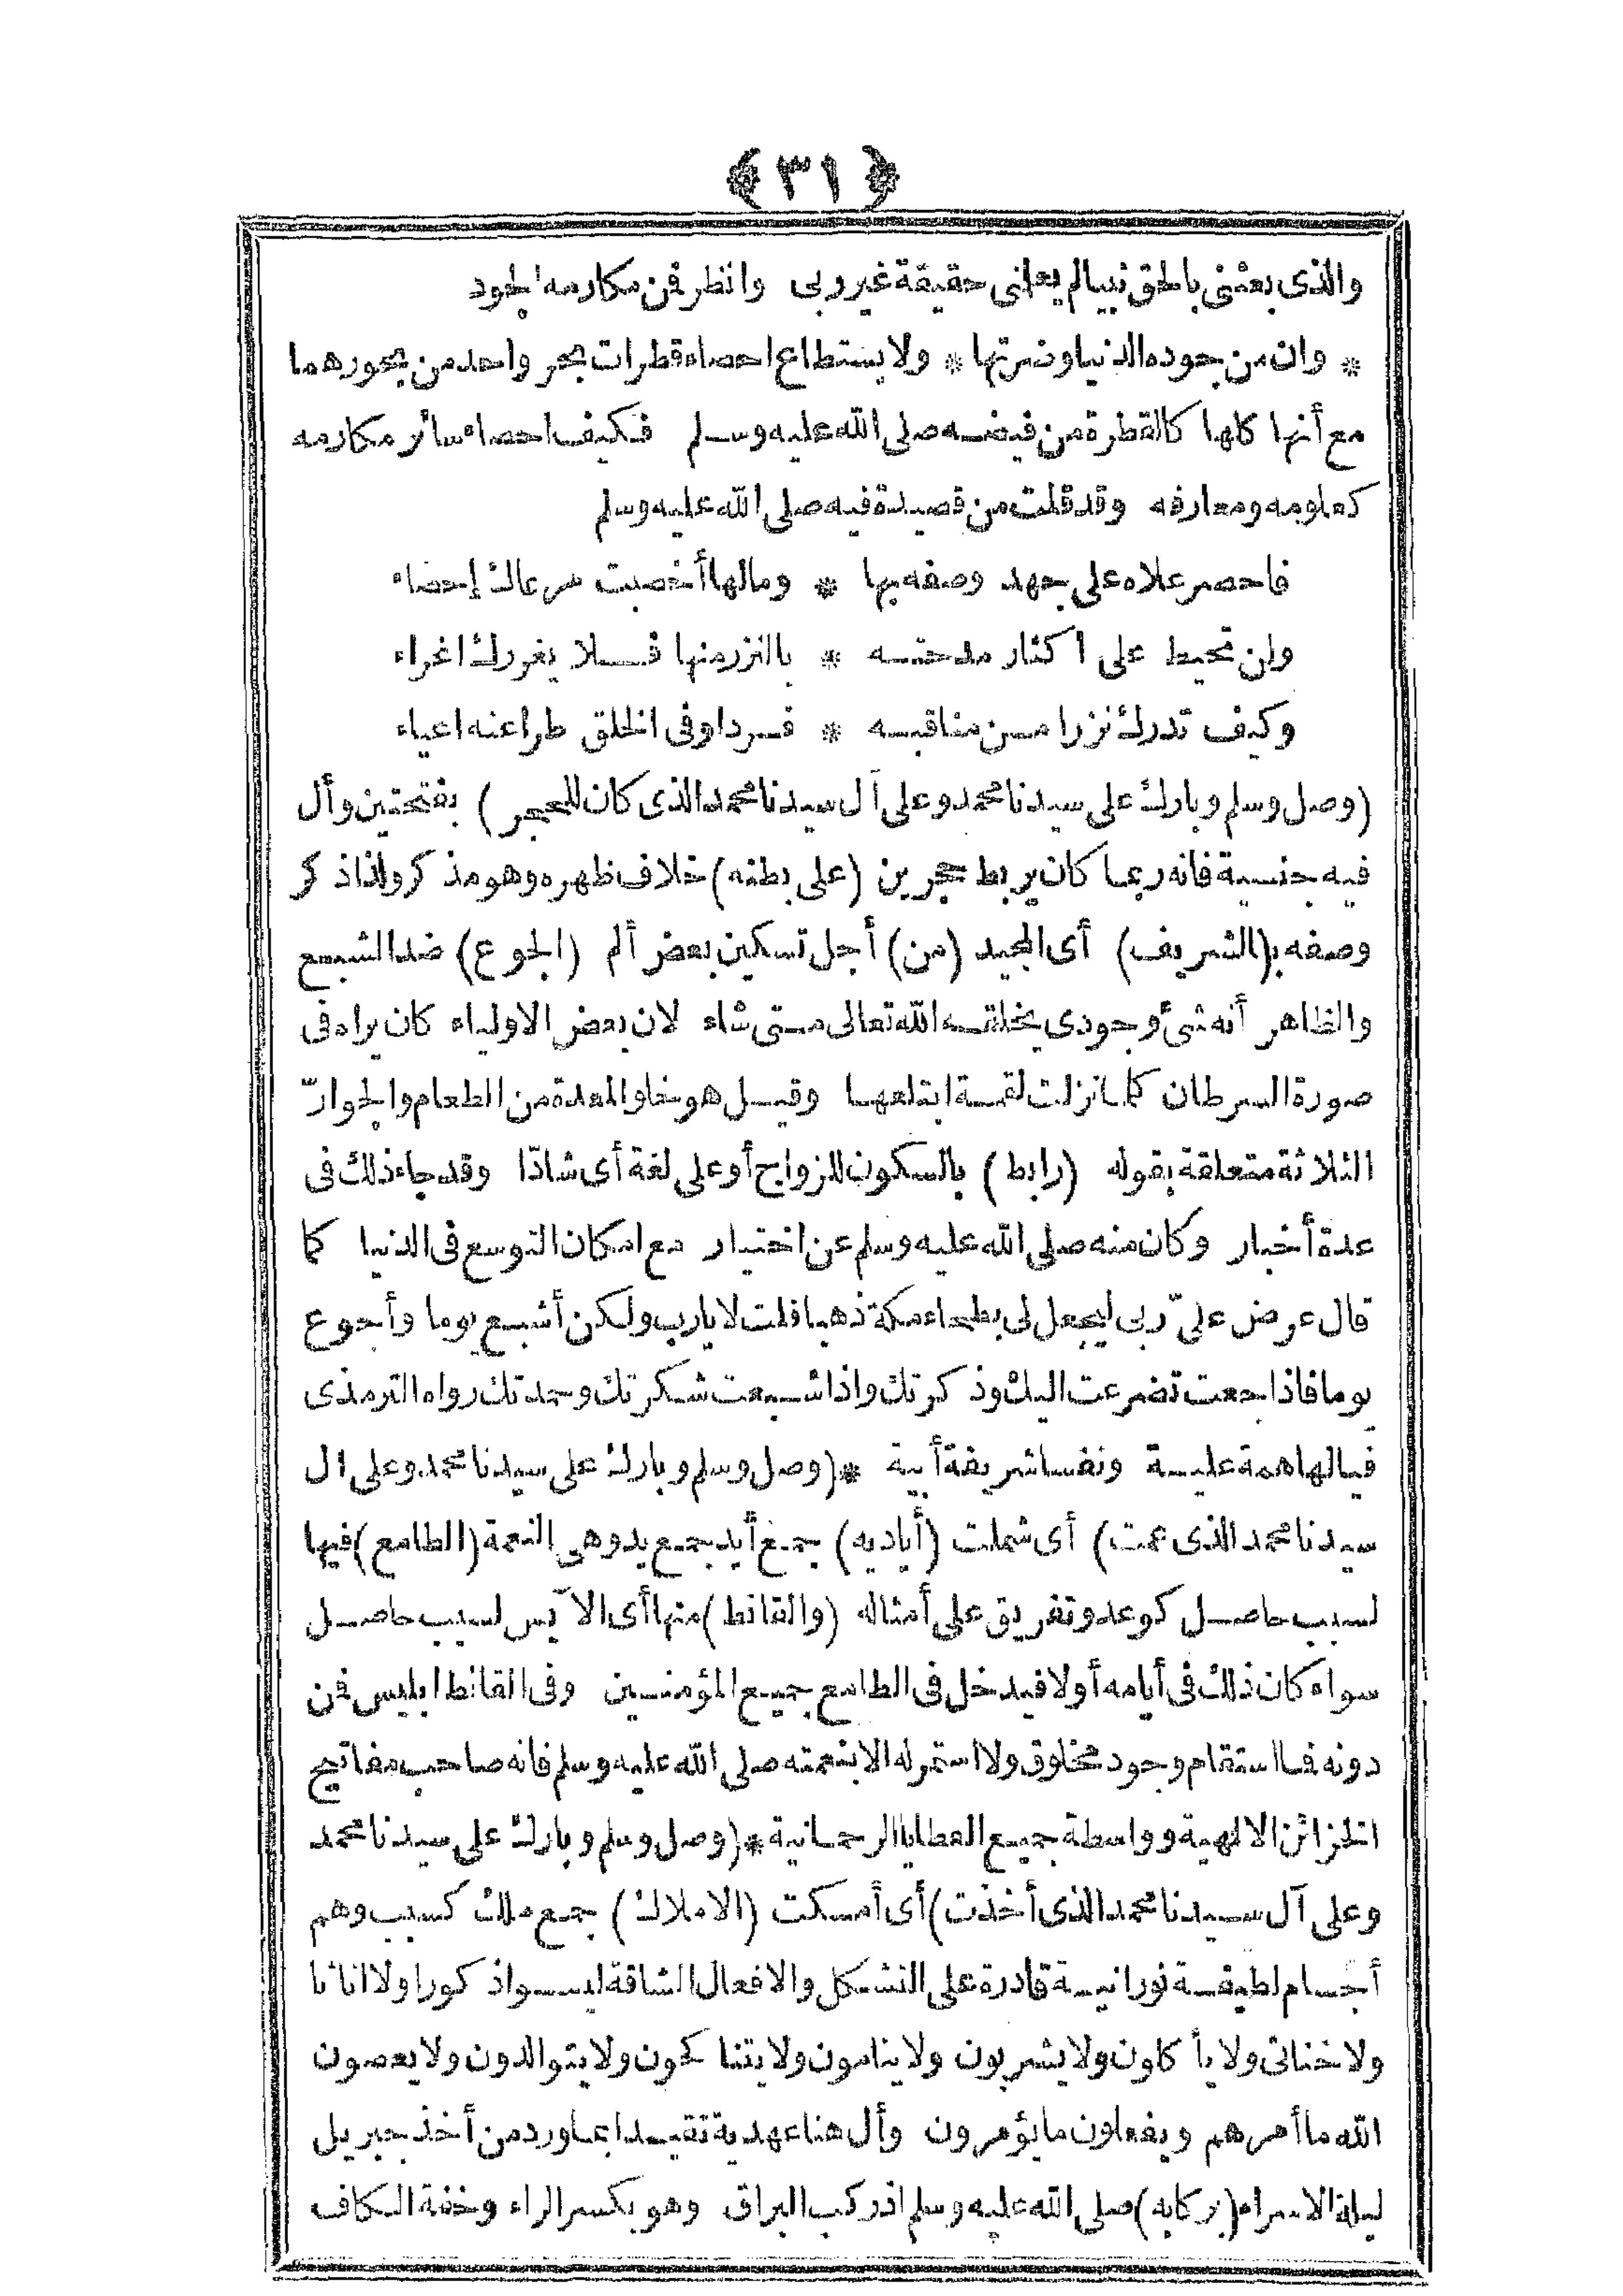 ﴿٣١﴾
والذى بعثنى بالحق نبيالم يعلمنى حقيقة غير ربى وانظر فمن مكارمه الجود
* وان من جوده الدنيا وضرتها * ولا يستطاع احصاء قطرات بحر واحد من بحورهما
مع أنها كلها كالقطرة من فيضه صلى الله عليه وسلم فكيف احصاء سائر مكارمه
كعلومه ومعارفه وقد قلت من قصيدة فيه صلى الله عليه وسلم
فاحصر علاه على جهد وصفه بها * ومالها أخصبت مرعاك إحصاء
ولن تحيط على اكثار مدحته * بالنزر منها فلا يغررك اغراء
وكيف تدرك نزرا من مناقبه * فردا وفى الخلق طرا عنه اعياء
(وصل وسلم وبارك على سيدنا محمد وعلى آل سيدنا محمد الذى كان للحجر) بفتحتين وأل
فيه جنسية فانه ربما كان يربط حجرين (على بطنه) خلاف ظهره وهو مذكر ولذا ذكر
وصفه بـ(الشريف) أى المجيد (من) أجل تسكين بعض ألم (الجوع) ضد الشبع
والظاهر أنه شئ وجودى يخلقه الله تعالى متى شاء لان بعض الاولياء كان يراه فى
صورة السرطان كلما نزلت لقمة ابتلعها وقيل هو خلو المعدة من الطعام والجوارّ
الثلاثة متعلقة بقوله (رابط) بالسكون للزواج أو على لغة أى شادّا وقد جاء ذلك فى
عدة أخبار وكان منه صلى الله عليه وسلم عن اختيار مع امكان التوسع فى الدنيا كما
قال عرض علىّ ربى ليجعل لى بطحاء مكة ذهبا قلت لا يارب ولكن أشبع يوما وأجوع
يوما فاذا جعت تضرعت اليك وذكرتك واذا شبعت شكرتك وحمدتك رواه الترمذى
فيالها همة علية ونفسا شريفة أبية *(وصل وسلم وبارك على سيدنا محمد وعلى ال
سيدنا محمد الذى عمت) أى شملت (أياديه) جمع أيد جمع يد وهى النعمة (الطامع) فيها
لسبب حاصل كوعد وتفريق على أمثاله (والقانط) منها أى الآيس لسبب حاصل
سواء كان ذلك فى أيامه أولا فيدخل فى الطامع جميع المؤمنين وفى القانط ابليس فمن
دونه فما استقام وجود مخلوق ولا استمر له الا بنعمته صلى الله عليه وسلم فانه صاحب مفاتيح
الخزائن الالهية وواسطة جميع العطايا الرحمانية *(وصل وسلم وبارك على سيدنا محمد
وعلى آل سيدنا محمد الذى أخذت) أى أمسكت (الاملاك) جمع ملك كسبب وهم
أجسام لطيفة نورانية قادرة على التشكل والافعال الشاقة ليسوا ذكورا ولا اناثا
ولا خناثى ولا يأكلون ولا يشربون ولا ينامون ولا يتناكحون ولا يتوالدون ولا يعصون
الله ما أمرهم ويفعلون ما يؤمرون وأل هنا عهدية تقييدا بما ورد من أخذ جبريل
ليلة الاسراء (بركابه) صلى الله عليه وسلم اذ ركب البراق وهو بكسر الراء وخفة الكاف